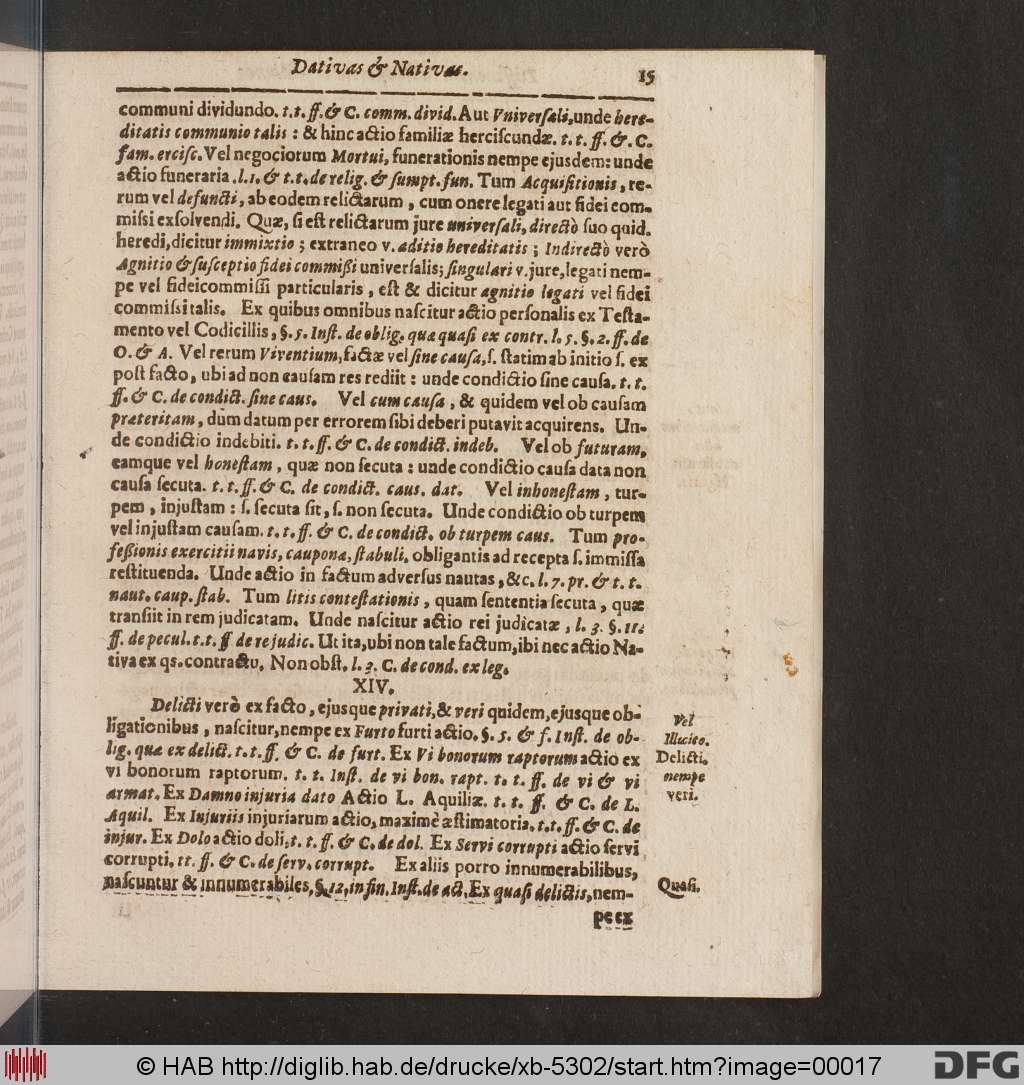 Dativas & Nativas.
15
communi dividundo. t.t. ff. & C. comm. divid. Aut Vniversali, unde here-
ditatis communio talis : & hinc actio familiæ herciscundæ. t. t. ff. &. C.
fam. ercisc. Vel negociorum Mortui, funerationis nempe ejusdem: unde
actio funeraria . l. 1. & t.t. de relig. & sumpt. fun. Tum Acquisitionis, re-
rum vel defuncti, ab eodem relictarum, cum onere legati aut fidei com-
missi exsolvendi. Quæ, si est relictarum jure universali, directò suo quid.
heredi, dicitur immixtio ; extraneo v. aditio hereditatis ; Indirectò verò
Agnitio & susceptio fidei commißi universalis; singulari v. jure, legati nem-
pe vel fideicommissi particularis, est & dicitur agnitio legati vel fidei
commissi talis. Ex quibus omnibus nascitur actio personalis ex Testa-
mento vel Codicillis, §. 5. Inst. de oblig. quæ quasi ex contr. l. 5. §. 2. ff. de
O. & A. Vel rerum Viventium, factæ vel sine causa, s. statim ab initio s. ex
post facto, ubi ad non causam res rediit : unde condictio sine causa. t. t.
ff. & C. de condict. sine caus. Vel cum causa, & quidem vel ob causam
præteritam, dum datum per errorem sibi deberi putavit acquirens. Un-
de condictio indebiti. t. t. ff. & C. de condict. indeb. Vel ob futuram,
eamque vel honestam, quæ non secuta : unde condictio causa data non
causa secuta. t. t. ff. & C. de condict. caus. dat. Vel inhonestam, tur-
pem, injustam : s. secuta sit, s. non secuta. Unde condictio ob turpem
vel injustam causam. t. t. ff. & C. de condict. ob turpem caus. Tum pro-
feßionis exercitii navis, cauponæ, stabuli, obligantis ad recepta s. immissa
restituenda. Unde actio in factum adversus nautas, &c. l. 7. pr. & t. t.
naut. caup. stab. Tum litis contestationis, quam sententia secuta, quæ
transiit in rem judicatam. Unde nascitur actio rei judicatæ, l. 3. §. 11.
ff. de pecul. t.t. ff de re judic. Ut ita, ubi non tale factum, ibi nec actio Na-
tiva ex qs. contractu. Non obst. l. 3. C. de cond. ex leg.
XIV.
Delicti verò ex facto, ejusque privati, & veri quidem, ejusque ob-
ligationibus, nascitur, nempe ex Furto furti actio. §. 5. & f. Inst. de ob-
lig. quæ ex delict. t. t. ff. & C. de furt. Ex Vi bonorum raptorum actio ex
vi bonorum raptorum. t. t. Inst. de vi bon. rapt. t. t. ff. de vi & vi
armat. Ex Damno injuria dato Actio L. Aquiliæ. t. t. ff. & C. de L.
Aquil. Ex Injuriis injuriarum actio, maximè æstimatoria. t.t. ff. & C. de
injur. Ex Dolo actio doli. t. t. ff. & C. de dol. Ex Servi corrupti actio servi
corrupti. tt. ff. & C. de serv. corrupt. Ex aliis porro innumerabilibus,
nascuntur & innumerabiles, §. 12. in fin. Inst. de act. Ex quasi delictis, nem-
pe ex
Vel
Illicito.
Delicti.
nempe
veri.
Quasi.
© HAB http://diglib.hab.de/drucke/xb-5302/start.htm?image=00017
DFG